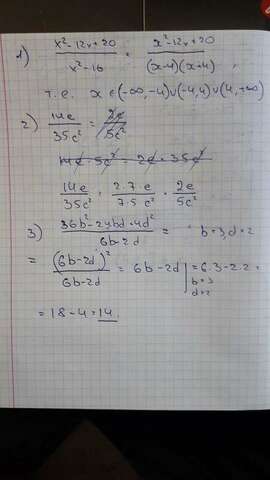 1) x²-12x+20 / x²-16 = x²-12x+20 / (x-4)(x+4) ,
т.е. x ∈ (-∞,-4)∪(-4,4)∪(4,+∞)
2) 14e / 35c² = 2e / 5c²
14e · 5c² = 2e · 35c²
14e / 35c² = 2·7·e / 7·5c² = 2e / 5c²
3) 36b²-24bd+4d² / 6b-2d = b=3, d=2
= (6b-2d)² / 6b-2d = 6b-2d | b=3 d=2 = 6·3-2·2 =
= 18-4=14.